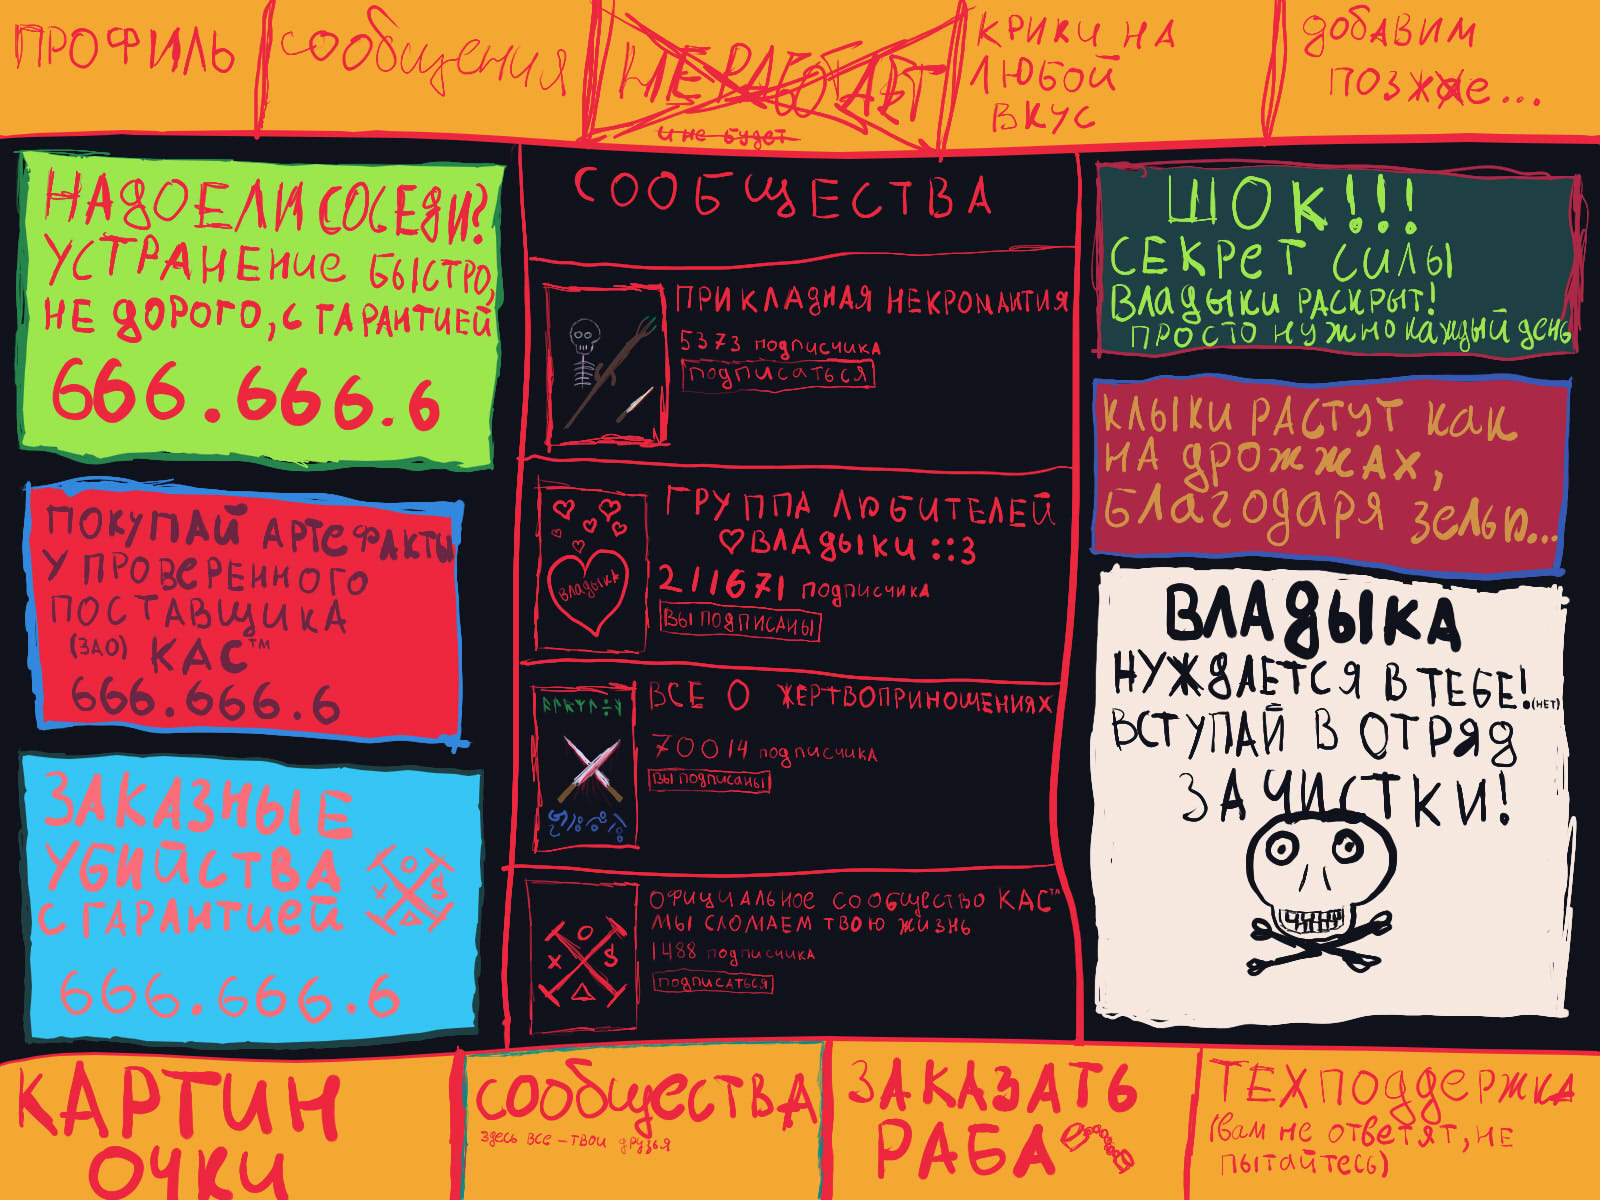 ПРОФИЛЬ
сообщения
НЕ РАБОТАЕТ
и не будет
КРИКИ НА
ЛЮБОЙ
ВКУС
добавим
позже...
НАДОЕЛИ СОСЕДИ?
УСТРАНЕНИЕ БЫСТРО,
НЕ ДОРОГО, С ГАРАНТИЕЙ
666.666.6
ПОКУПАЙ АРТЕФАКТЫ
У ПРОВЕРЕННОГО
ПОСТАВЩИКА
(ЗАО) КАС™
666.666.6
ЗАКАЗНЫЕ
УБИЙСТВА
С ГАРАНТИЕЙ
666.666.6
СООБЩЕСТВА
ПРИКЛАДНАЯ НЕКРОМАНТИЯ
5373 подписчика
ПОДПИСАТЬСЯ
ГРУППА ЛЮБИТЕЛЕЙ
♡ВЛАДЫКИ ::3
211671 подписчика
ВЫ ПОДПИСАНЫ
ВЛАДЫКА
ВСЕ О ЖЕРТВОПРИНОШЕНИЯХ
70014 подписчика
ВЫ ПОДПИСАНЫ
ОФИЦИАЛЬНОЕ СООБЩЕСТВО КАС™
МЫ СЛОМАЕМ ТВОЮ ЖИЗНЬ
1488 подписчика
ПОДПИСАТЬСЯ
X O $ △
ШОК!!!
СЕКРЕТ СИЛЫ
ВЛАДЫКИ РАСКРЫТ!
ПРОСТО НУЖНО КАЖДЫЙ ДЕНЬ
КЛЫКИ РАСТУТ КАК
НА ДРОЖЖАХ,
БЛАГОДАРЯ ЗЕЛЬЮ...
ВЛАДЫКА
НУЖДАЕТСЯ В ТЕБЕ! (НЕТ)
ВСТУПАЙ В ОТРЯД
ЗАЧИСТКИ!
КАРТИН
ОЧКИ
СООБЩЕСТВА
здесь все – твои друзья
ЗАКАЗАТЬ
РАБА
ТЕХПОДДЕРЖКА
(Вам не ответят, не
пытайтесь)